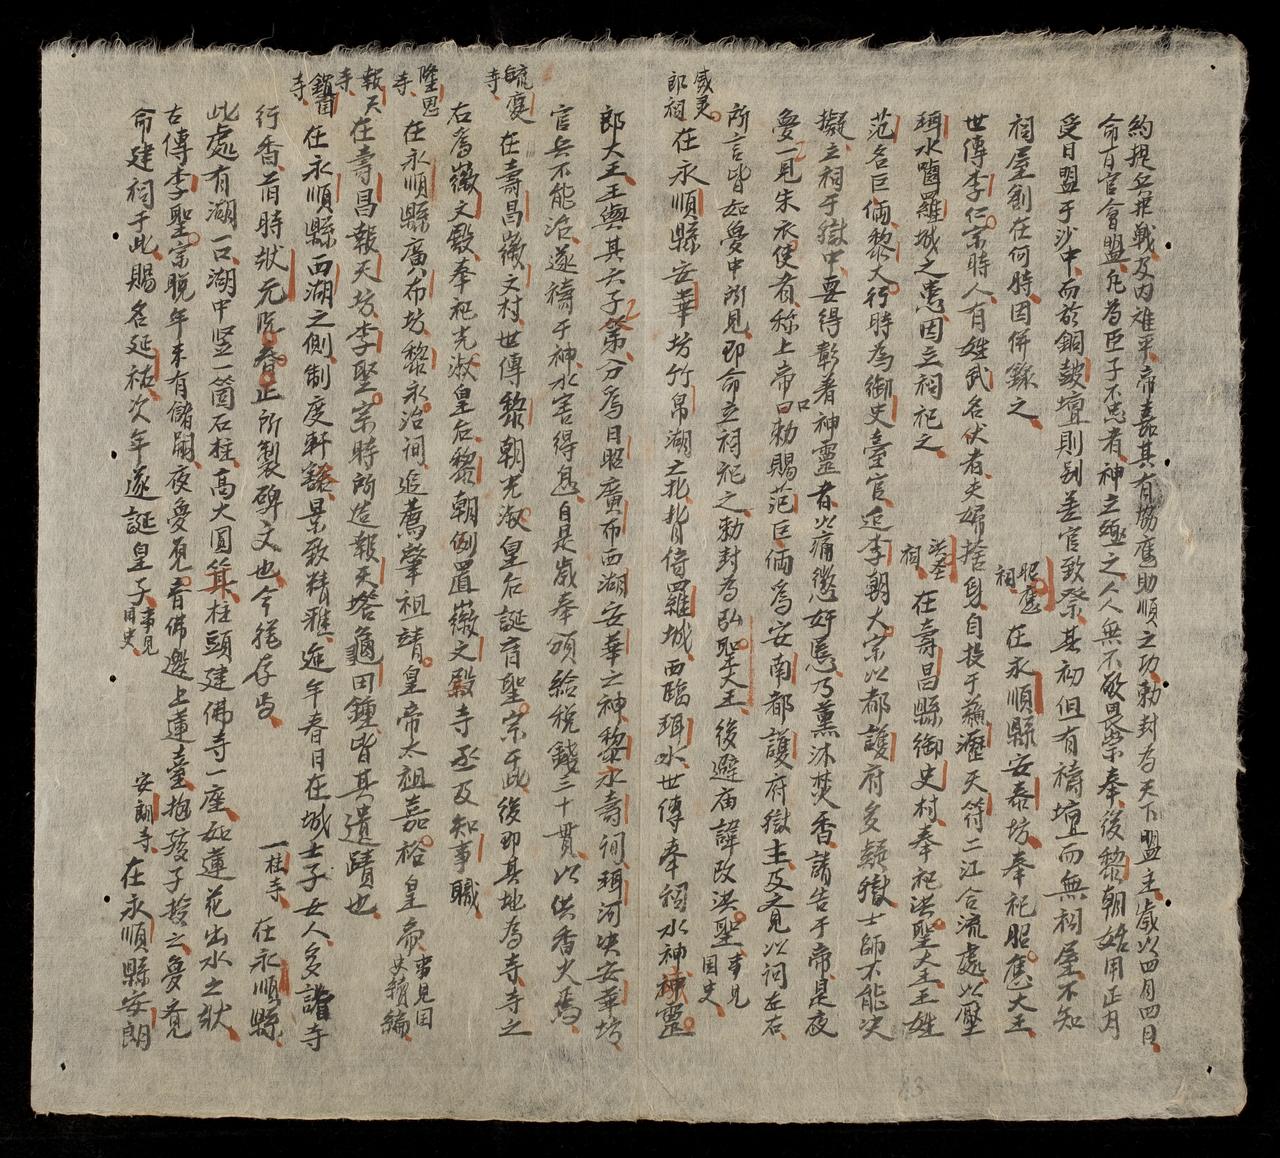 約提兵拒戰及內难平帝嘉其有協奮助順之功勅封為天下盟主歲以四月四日
命百官會盟凡為臣子不忠者神之殛之人人無不敬畏崇奉後黎朝始用正月
受日盟于沙中而於銅皷壇則别差官致祭基初但有禱壇而無祠屋不知
祠屋剏在何時因併錄之
昭應祠
在永順縣安泰坊奉祀昭應大王
世傳李仁宗時人有姓武名伏者夫婦捨身自投于蘇瀝天符二江合流處以壓
珥水嚙羅城之患因立祠祀之
洪聖祠
在壽昌縣御史村奉祀洪聖大王王姓
范名巨倆黎大行時為御史臺官迨李朝太宗以都護府多疑獄士師不能决
擬立祠于獄中要得彰著神靈者以痛懲奸慝乃薰沐焚香請告于帝是夜
夢一見朱衣使者称上帝口勅賜范巨倆為安南都護府獄主及文見以祠左右
所言皆如夢中所見即命立祠祀之勅封為弘聖大王後避庙諱改洪聖事見國史
威灵郎祠
在永順縣安華坊竹帛湖之北背倚羅城西臨珥水世傳奉祠水神神靈
郎大王王與其六子弟分為日昭廣布西湖安華之神黎永壽祠珥河决安華坊
官兵不能治遂禱于神水害得息自是歲奉頒給稅錢三十貫以供香火焉
琉璃寺
在壽昌徽文村世傳黎朝光淑皇后誕育聖宗于此後即其地為寺寺之
右為徽文殿奉祀光淑皇后黎朝例置徽文殿寺丞及知事職
隆恩寺
在永順縣廣布坊黎永治祠追薦肇祖靖皇帝太祖嘉裕皇帝事見国史續編
報天寺
在壽昌報天坊李聖宗時所造報天塔龜田鐘皆其遺蹟也
鎮國寺
在永順縣西湖之側制度軒豁景致精雅遊年春日在城士子女人多詣寺
行香前時狀元阮春正所製碑文也今猶存焉
一柱寺
在永順縣
此處有湖一口湖中竖一箇石柱高大圓箕柱頭建佛寺一座如蓮花出水之狀
古傳李聖宗脱年未有儲嗣夜夢見音佛邀上蓮臺抱孩子授之夢覺
命建祠于此賜名延祐次年遂誕皇子事見國史
安朗寺
在永順縣安朗